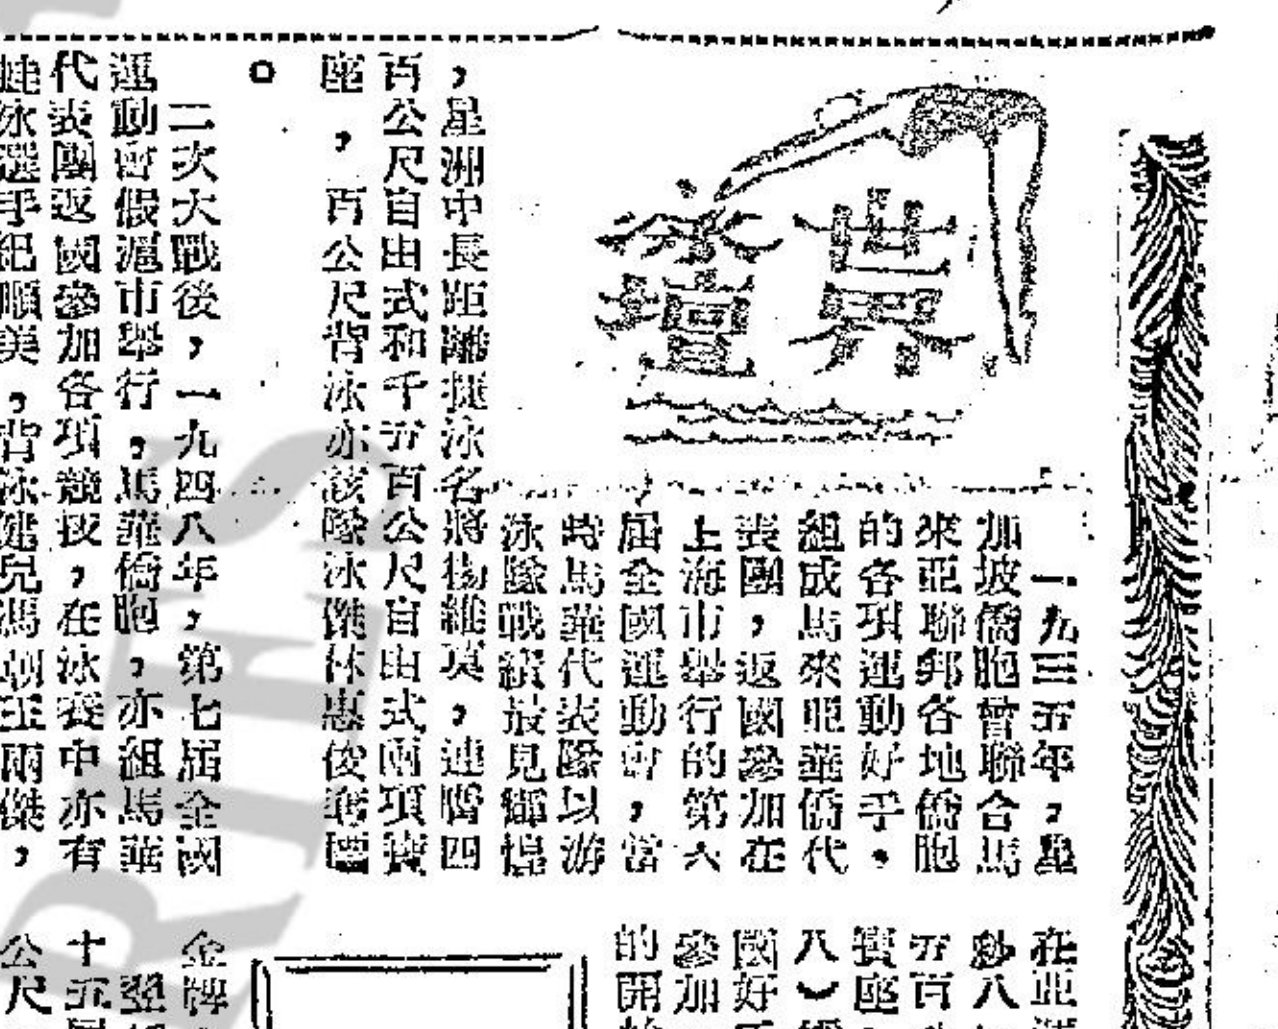 世界
泳壇
一九三五年，星
加坡僑胞曾聯合馬
來亞聯邦各地僑胞
的各項運動好手，
組成馬來亞華僑代
表團，返國參加在
上海市舉行的第六
屆全國運動會，當
時馬華代表隊以游
泳隊戰績最見輝煌
，星洲中長距離捷泳名將楊維莫，連奪四
百公尺自由式和千五百公尺自由式兩項寶
座，百公尺背泳亦該隊泳傑林惠俊奪
。
二次大戰後，一九四八年，第七屆全國
運動會假滬市舉行，馬華僑胞，亦組馬華
代表團返國參加各項競技，在泳賽中亦有
蛙泳選手紀順美，背泳健兒馮 兩傑，
在亞
秒八
五百
寶座
八）
國好
參加
的開
金牌
十五
公尺
RIES